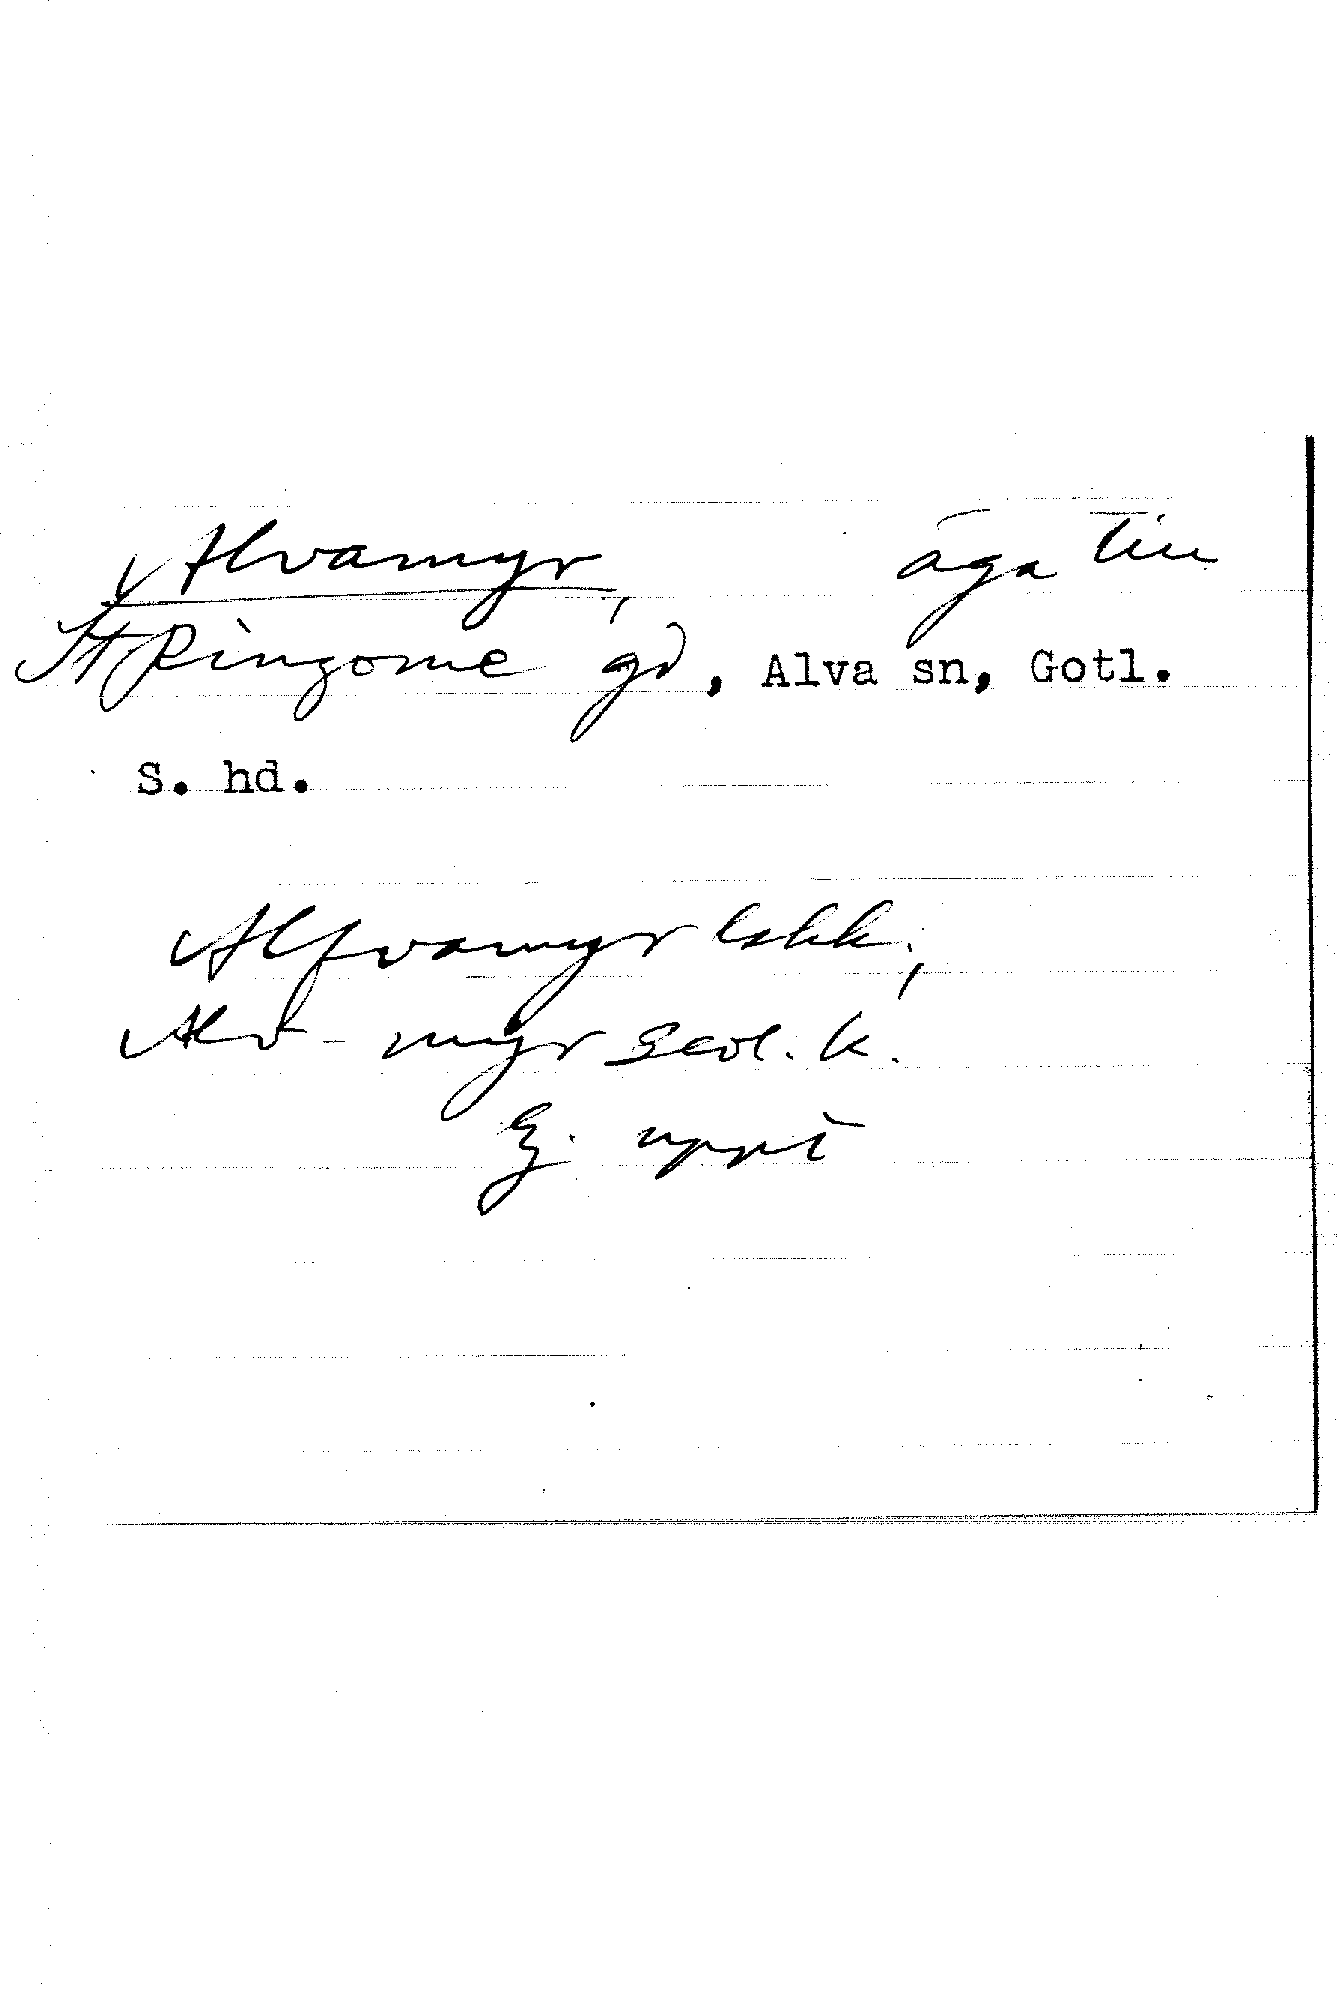 Alvamyr, äga till
St Ringome gd, Alva sn, Gotl.
S. hd.
Alfvamyr lskk;
Alv-myr Seol. k.
Ej uppt